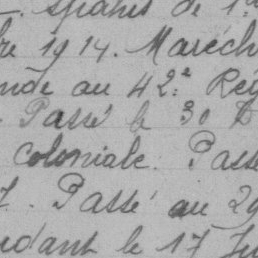 spahis de 1.
bre 1914. Maréch
nde au 42.e Rég
Passé le 30 D
coloniale. Passé
7. Passé au 29
ndant le 17 Ju